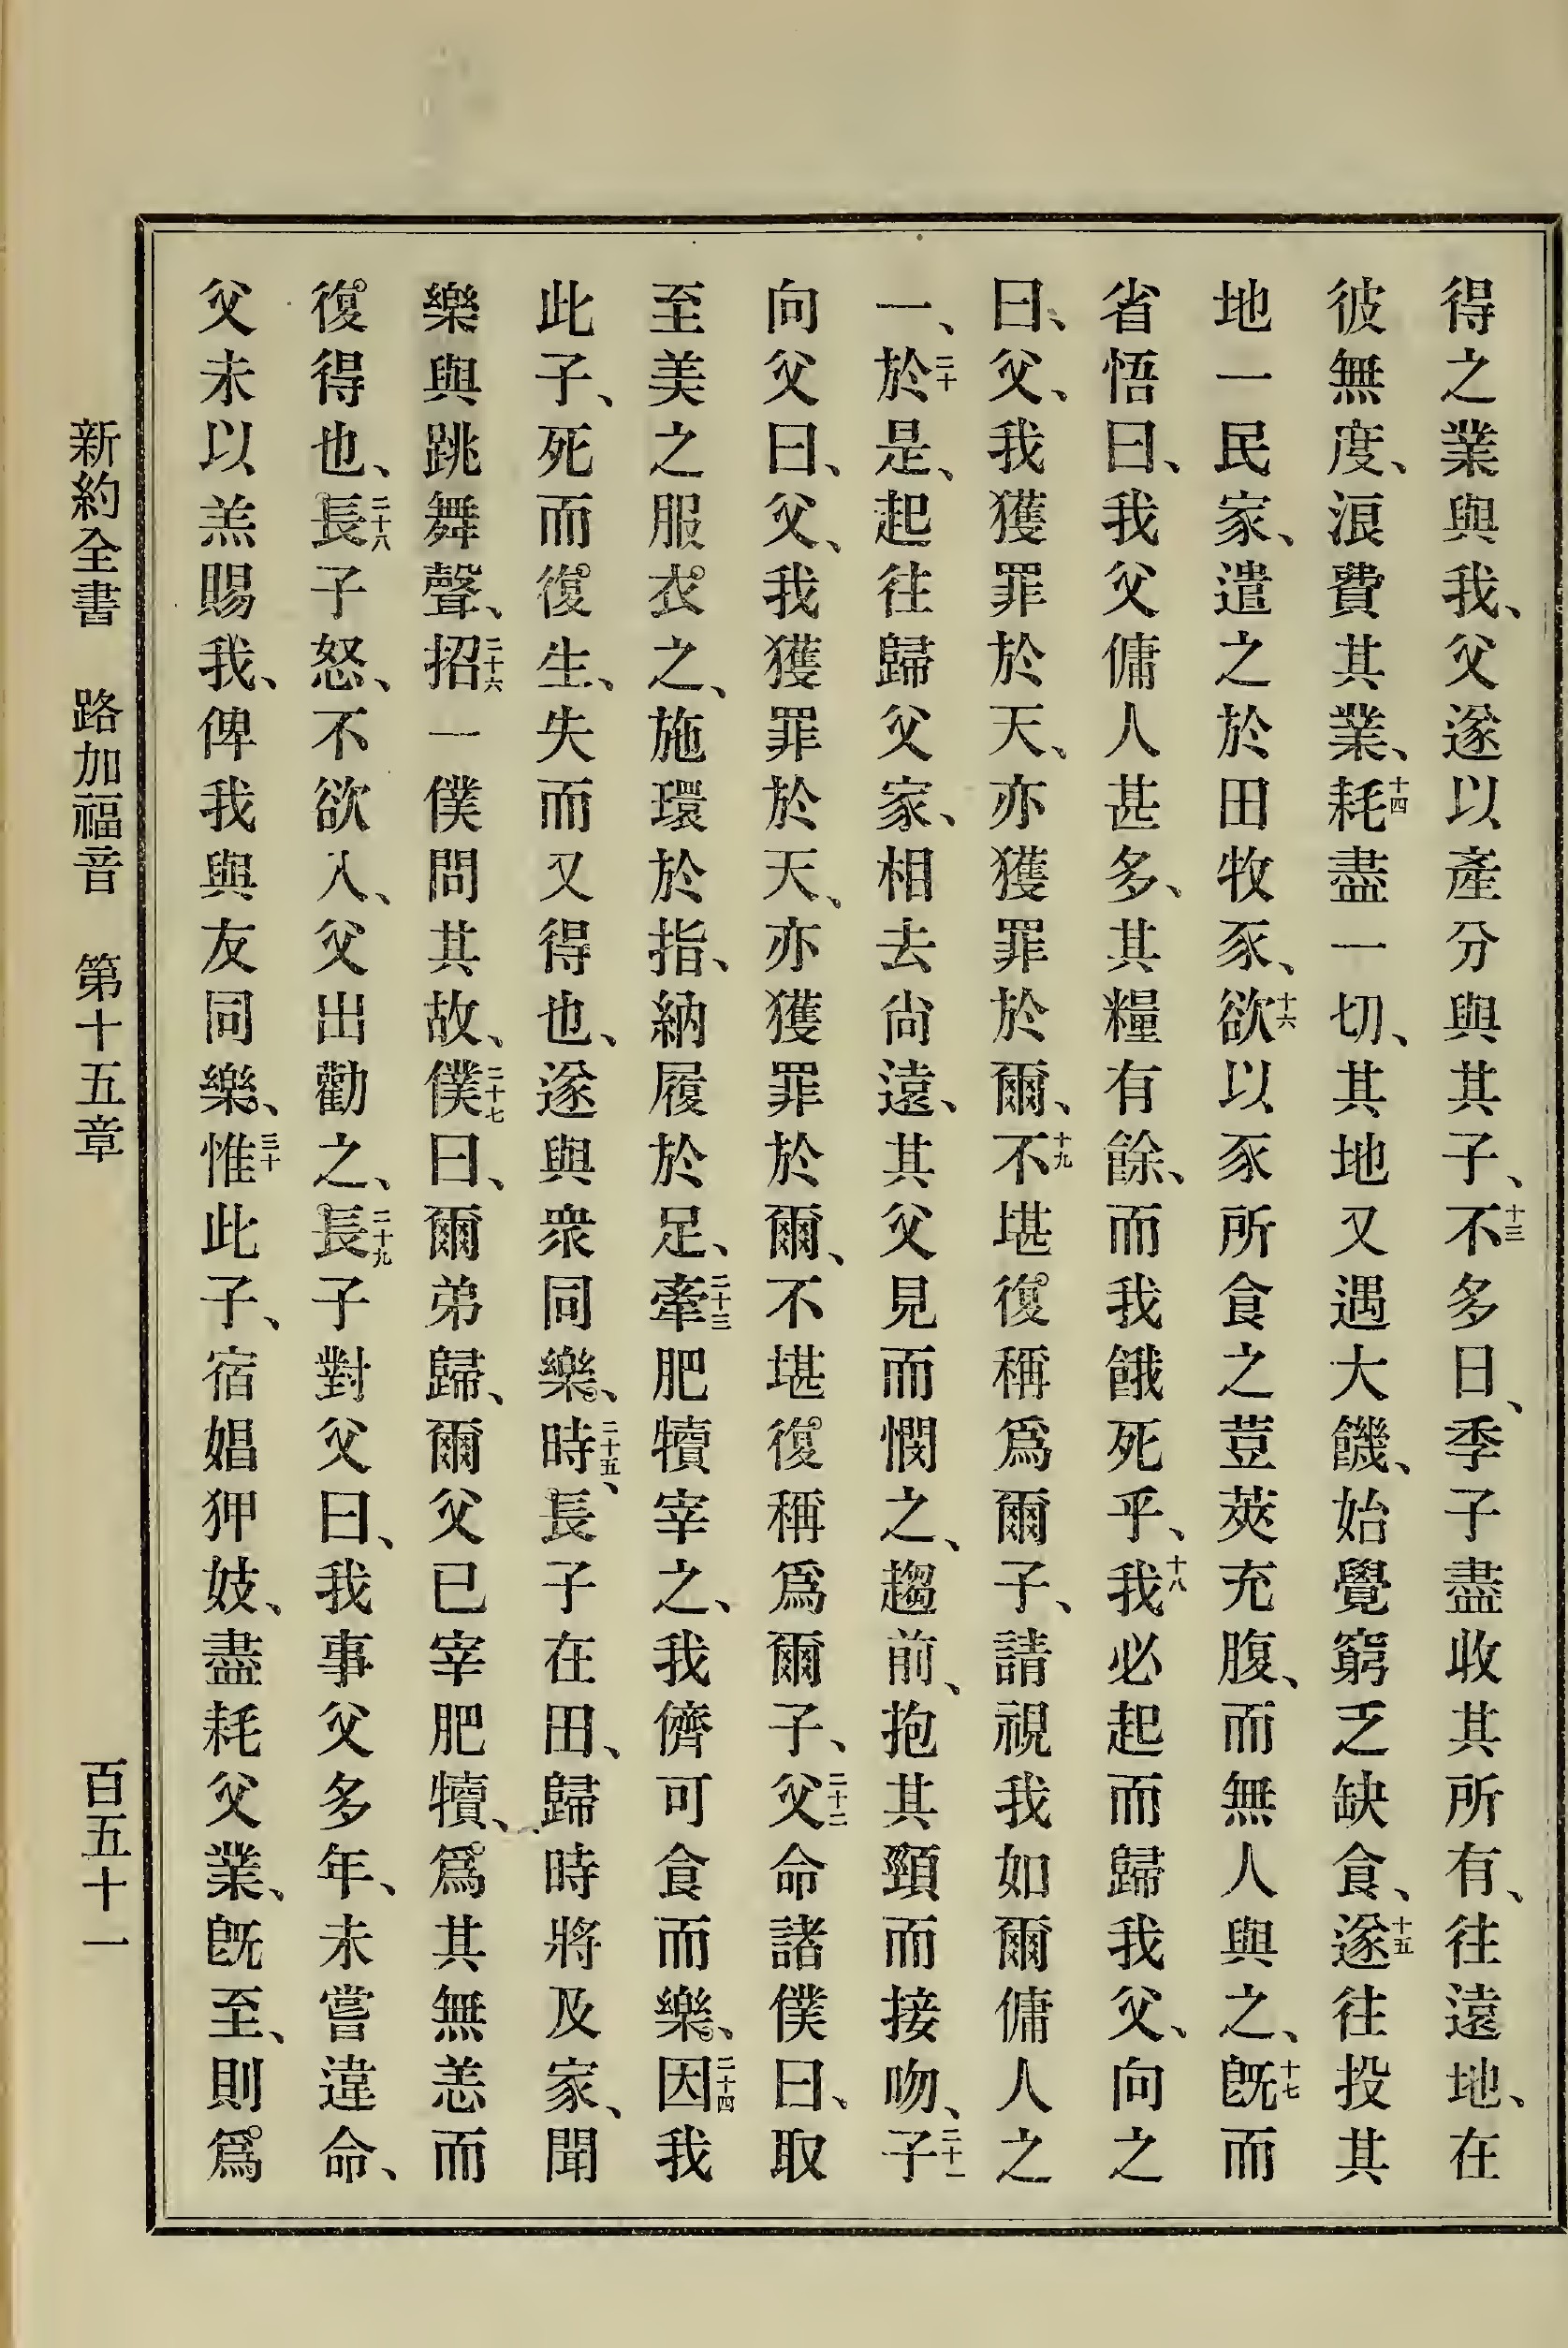 得之業與我、父遂以產分與其子、十三不多日、季子盡收其所有、往遠地、在
彼無度、浪費其業、十四耗盡一切、其地又遇大饑、始覺窮乏缺食、十五遂往投其
地一民家、遣之於田牧豕、十六欲以豕所食之荳莢充腹、而無人與之、十七旣而
省悟曰、我父傭人甚多、其糧有餘、而我餓死乎、十八我必起而歸我父、向之
曰、父、我獲罪於天、亦獲罪於爾、十九不堪復稱爲爾子、請視我如爾傭人之
一、二十於是、起往歸父家、相去尙遠、其父見而憫之、趨前、抱其頸而接吻、二十一子
向父曰、父、我獲罪於天、亦獲罪於爾、不堪復稱爲爾子、二十二父命諸僕曰、取
至美之服衣之、施環於指、納履於足、二十三牽肥犢宰之、我儕可食而樂、二十四因我
此子、死而復生、失而又得也、遂與衆同樂、二十五時、長子在田、歸時將及家、聞
樂與跳舞聲、二十六招一僕問其故、二十七僕曰、爾弟歸、爾父已宰肥犢、爲其無恙而
復得也、二十八長子怒、不欲入、父出勸之、二十九長子對父曰、我事父多年、未嘗違命、
父未以羔賜我、俾我與友同樂、三十惟此子、宿娼狎妓、盡耗父業、旣至、則爲
新約全書 路加福音 第十五章 百五十一